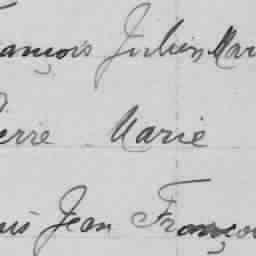 ançois Julien Mar
ierre Marie
uis Jean Franço